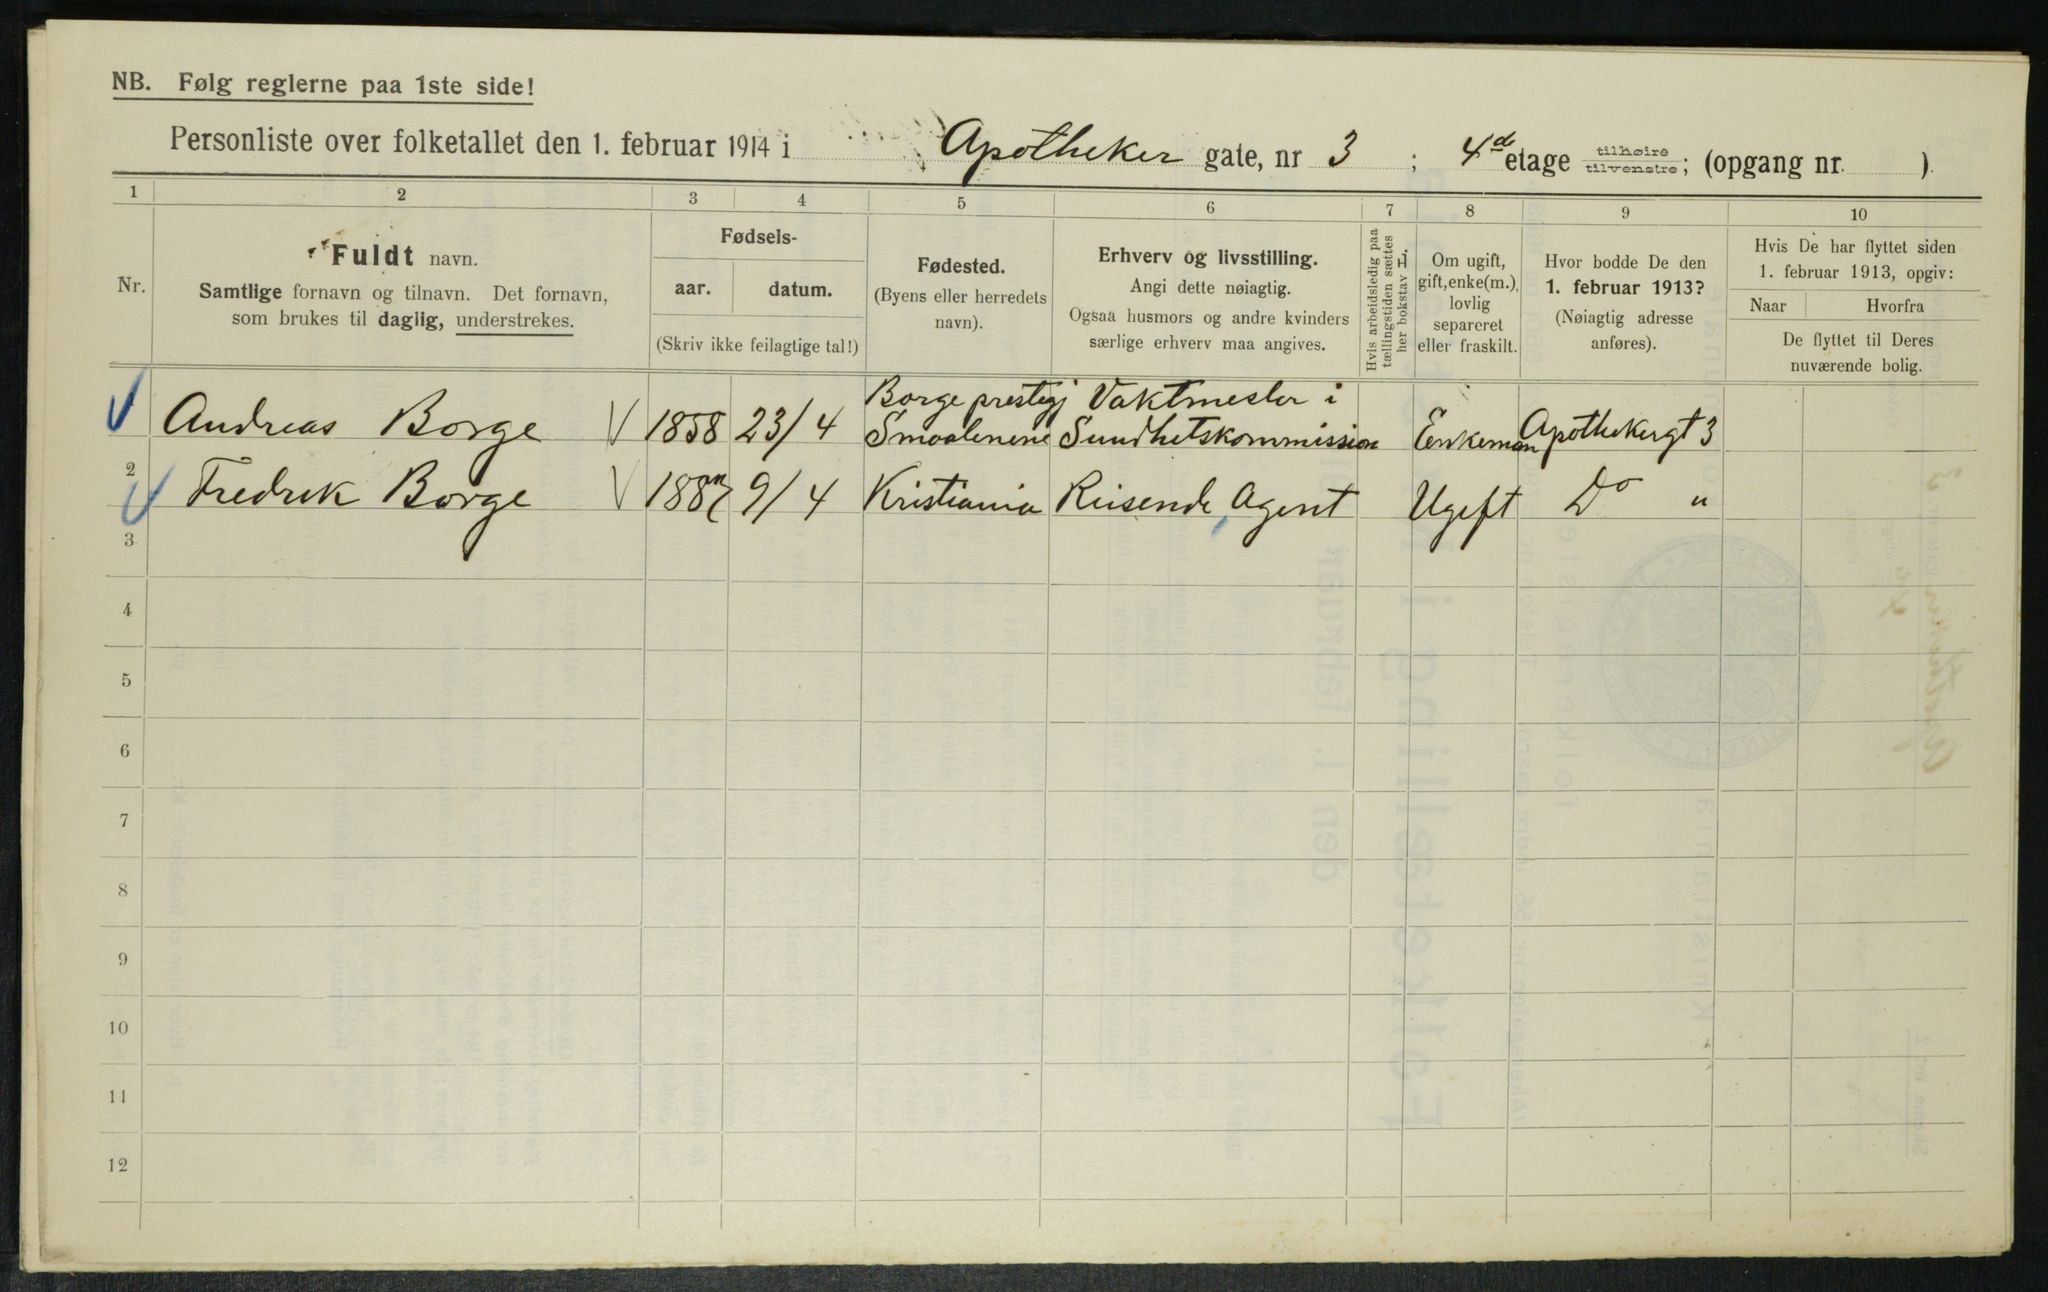 NB. Følg reglerne paa 1ste side!
Personliste over folketallet den 1. februar 1914 i Apotheker gate, nr 3 ; 4d etage tilhøire / tilvenstre; (opgang nr. ).
1 2 3 4 5 6 7 8 9 10
Nr.
Fuldt navn.
Samtlige fornavn og tilnavn. Det fornavn,
som brukes til daglig, understrekes.
Fødsels-
aar. datum.
(Skriv ikke feilagtige tal!)
Fødested.
(Byens eller herredets
navn).
Erhverv og livsstilling.
Angi dette nøiagtig.
Ogsaa husmors og andre kvinders
særlige erhverv maa angives.
Hvis arbeidsledig paa
tællingstiden sættes
her bokstav L.
Om ugift,
gift, enke(m.),
lovlig
separeret
eller fraskilt.
Hvor bodde De den
1. februar 1913?
(Nøiagtig adresse
anføres).
Hvis De har flyttet siden
1. februar 1913, opgiv:
Naar Hvorfra
De flyttet til Deres
nuværende bolig.
Borge prestegj Vaktmester i
Andreas Borge 1858 23/4 Smaalenene Sundhetskommission Enkeman Apothekergt 3
2 Fredrik Borge 1887 9/4 Kristiania Reisende Agent Ugeft Do "
3
4
5
6
7
8
9
10
11
12